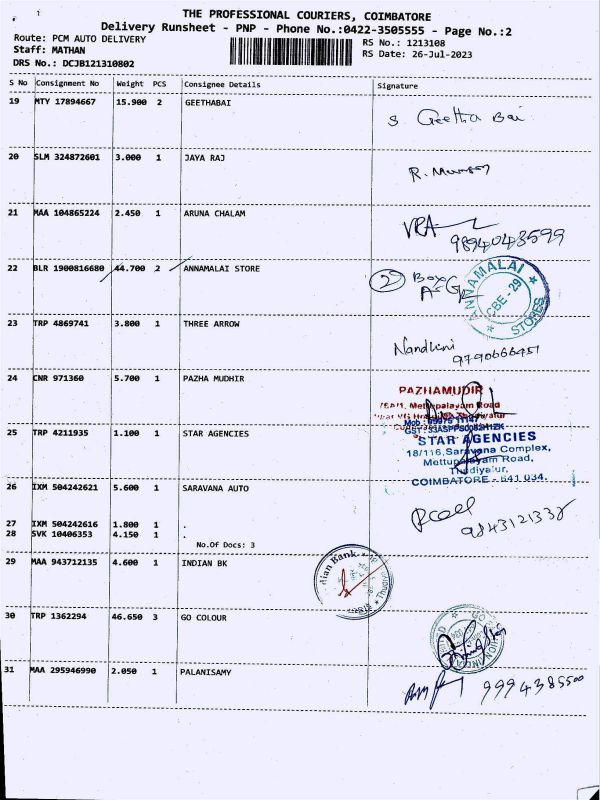 THE PROFESSIONAL COURIERS, COIMBATORE
Delivery Runsheet - PNP - Phone No.:0422-3505555 - Page No.:2
Route: PCM AUTO DELIVERY
Staff: MATHAN
DRS No.: DCJB121310802
RS No.: 1213108
RS Date: 26-Jul-2023
S No Consignment No Weight PCS Consignee Details Signature
19 MTY 17894667 15.900 2 GEETHABAI S. Geetha Bai
20 SLM 324872601 3.000 1 JAYA RAJ
21 MAA 104865224 2.450 1 ARUNA CHALAM
9894043599
22 BLR 1900816680 44.700 2 ANNAMALAI STORE 2 Box
ANNAMALAI STORES CBE - 29
23 TRP 4869741 3.800 1 THREE ARROW Nandhini
9790666451
24 CNR 971360 5.700 1 PAZHA MUDHIR
PAZHAMUDIR
Mettupalayam Road
25 TRP 4211935 1.100 1 STAR AGENCIES
STAR AGENCIES
18/116, Saravana Complex,
Mettupalayam Road,
Thudiyalur,
COIMBATORE - 641 034.
26 IXM 504242621 5.600 1 SARAVANA AUTO
9843121338
27 IXM 504242616 1.800 1 .
28 SVK 10406353 4.150 1 .
No.Of Docs: 3
29 MAA 943712135 4.600 1 INDIAN BK
30 TRP 1362294 46.650 3 GO COLOUR
31 MAA 295946990 2.050 1 PALANISAMY
9994385500